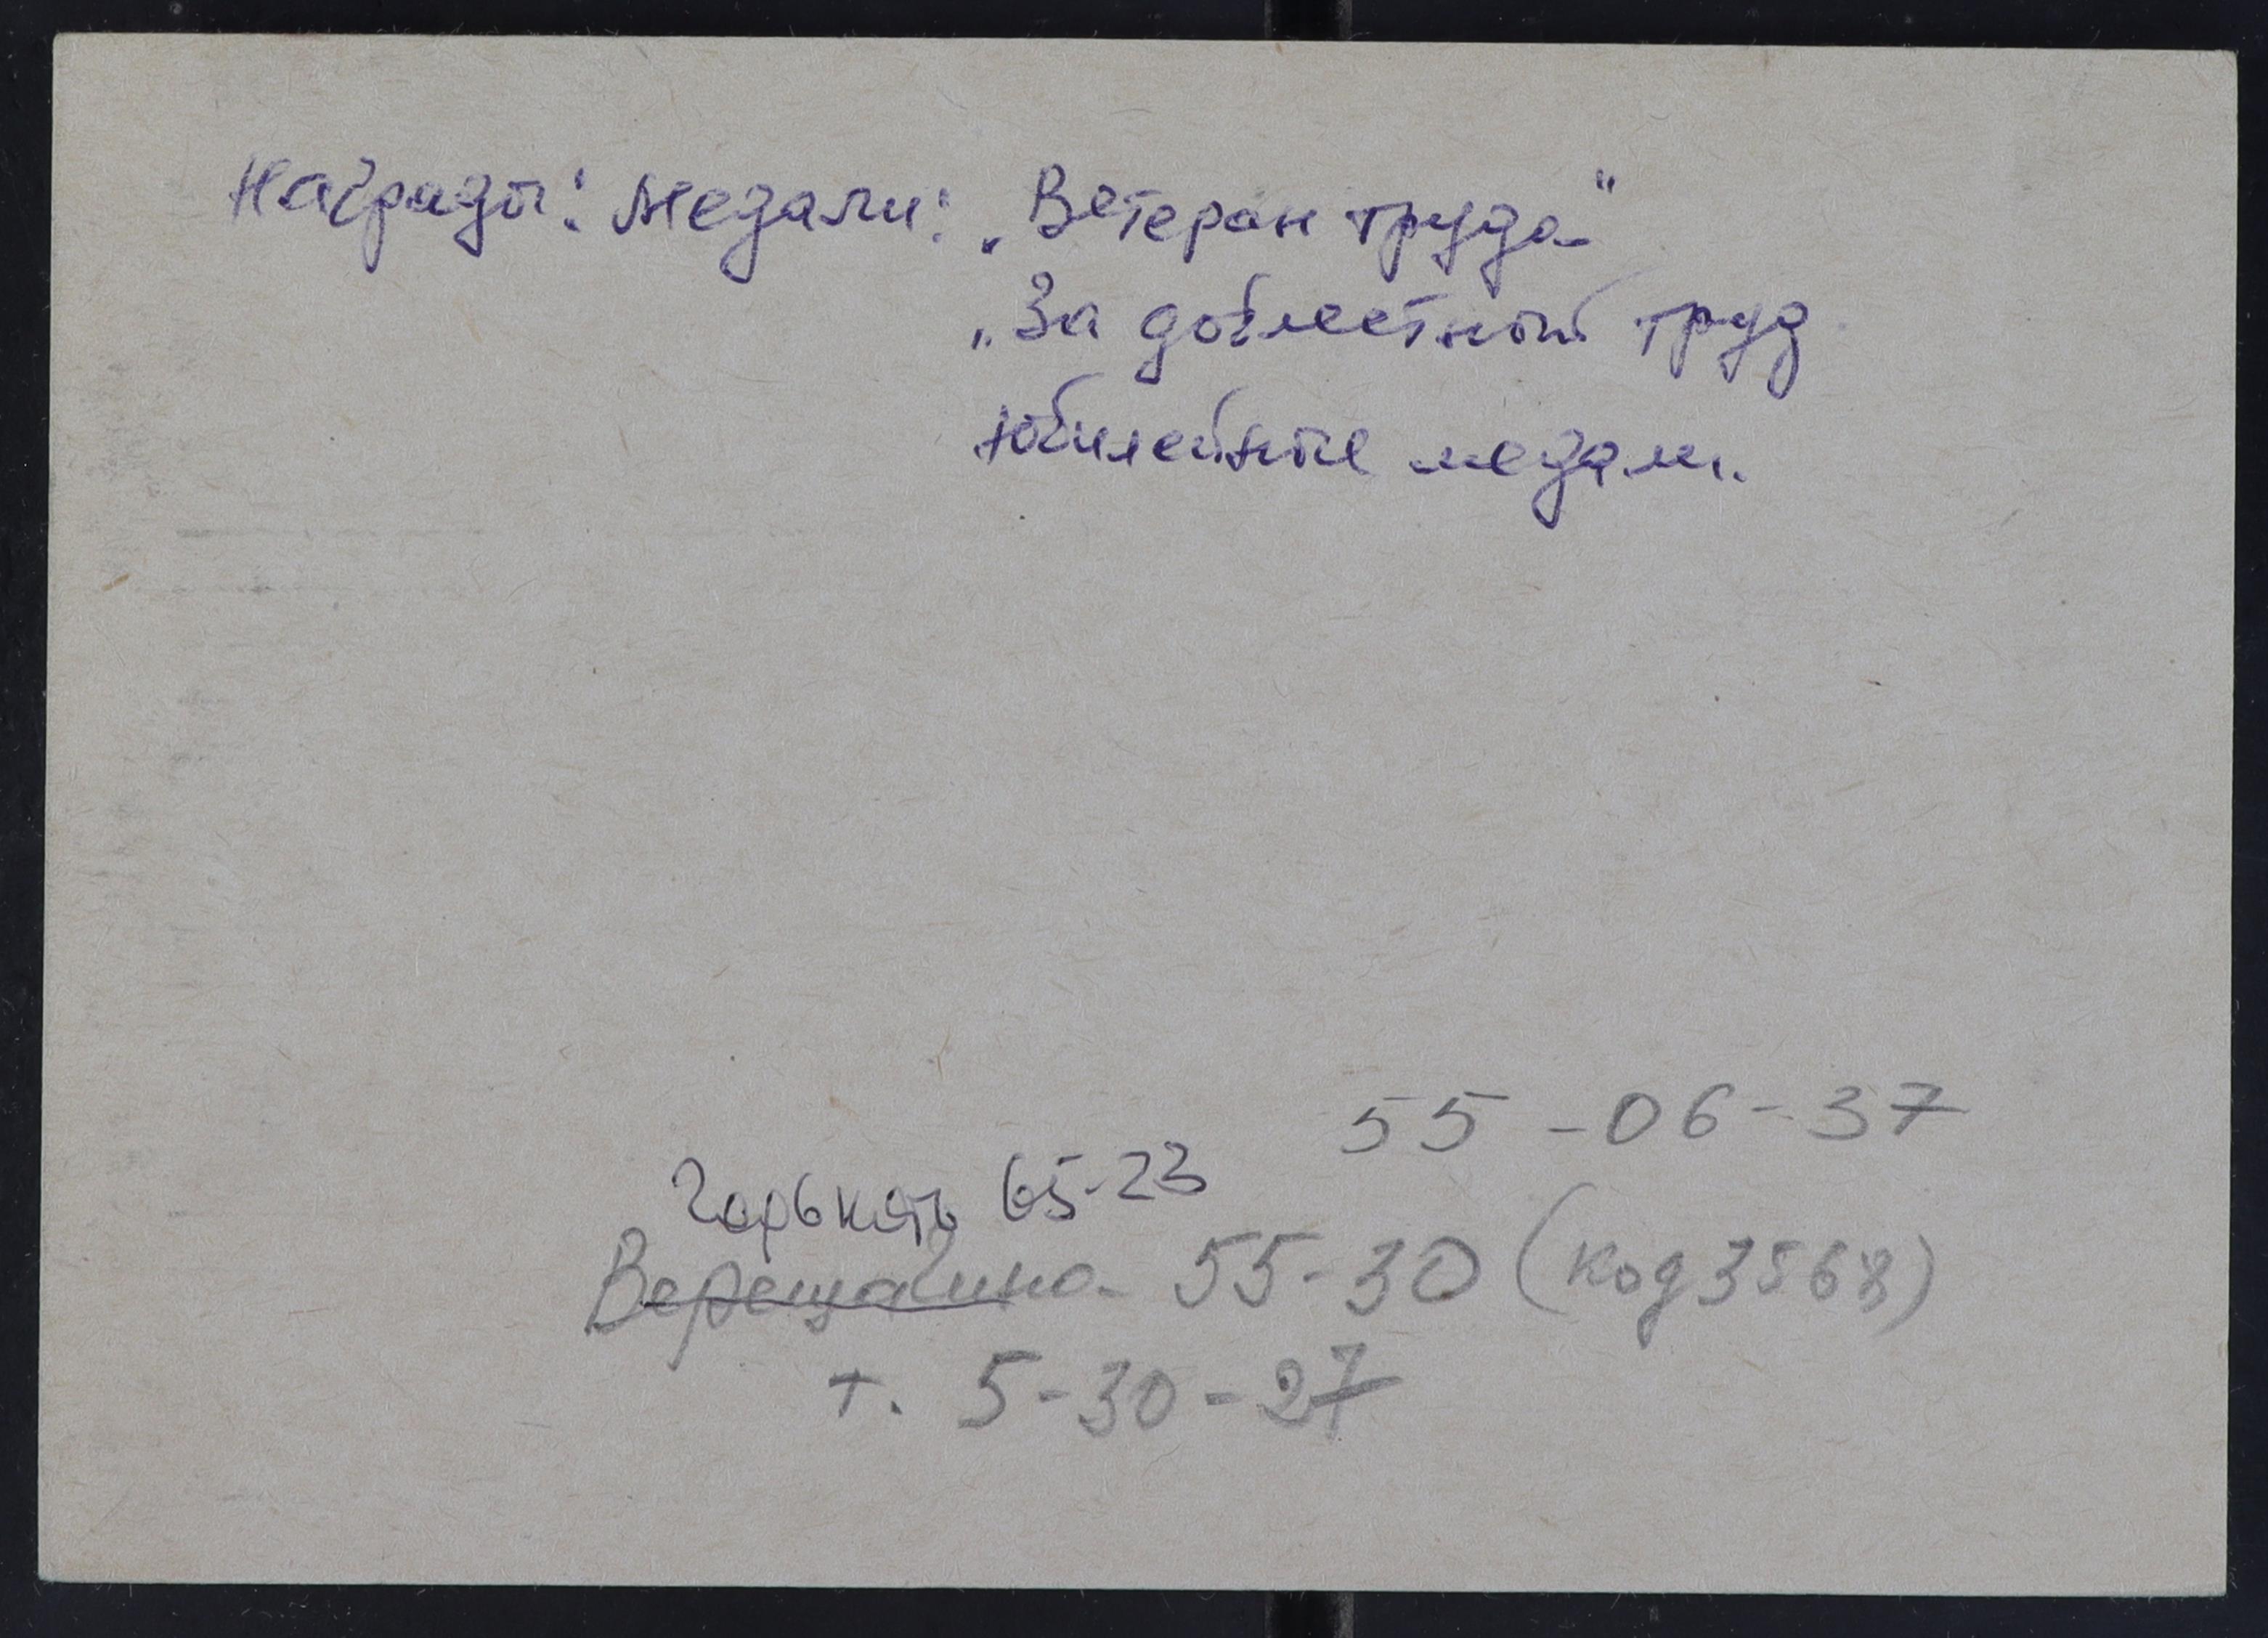 Награды: медали: „Ветеран труда"
„За доблестный труд
юбилейные медали.
55-06-37
Горького 65-23
Верещагино- 55-30 (код 3568)
т. 5-30-27